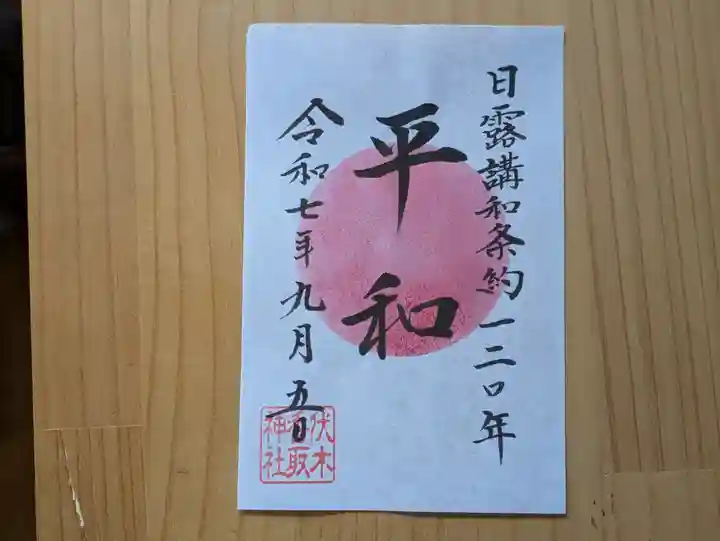 日露講和条約一二〇年
平和
令和七年九月五日
伏木
香取
神社